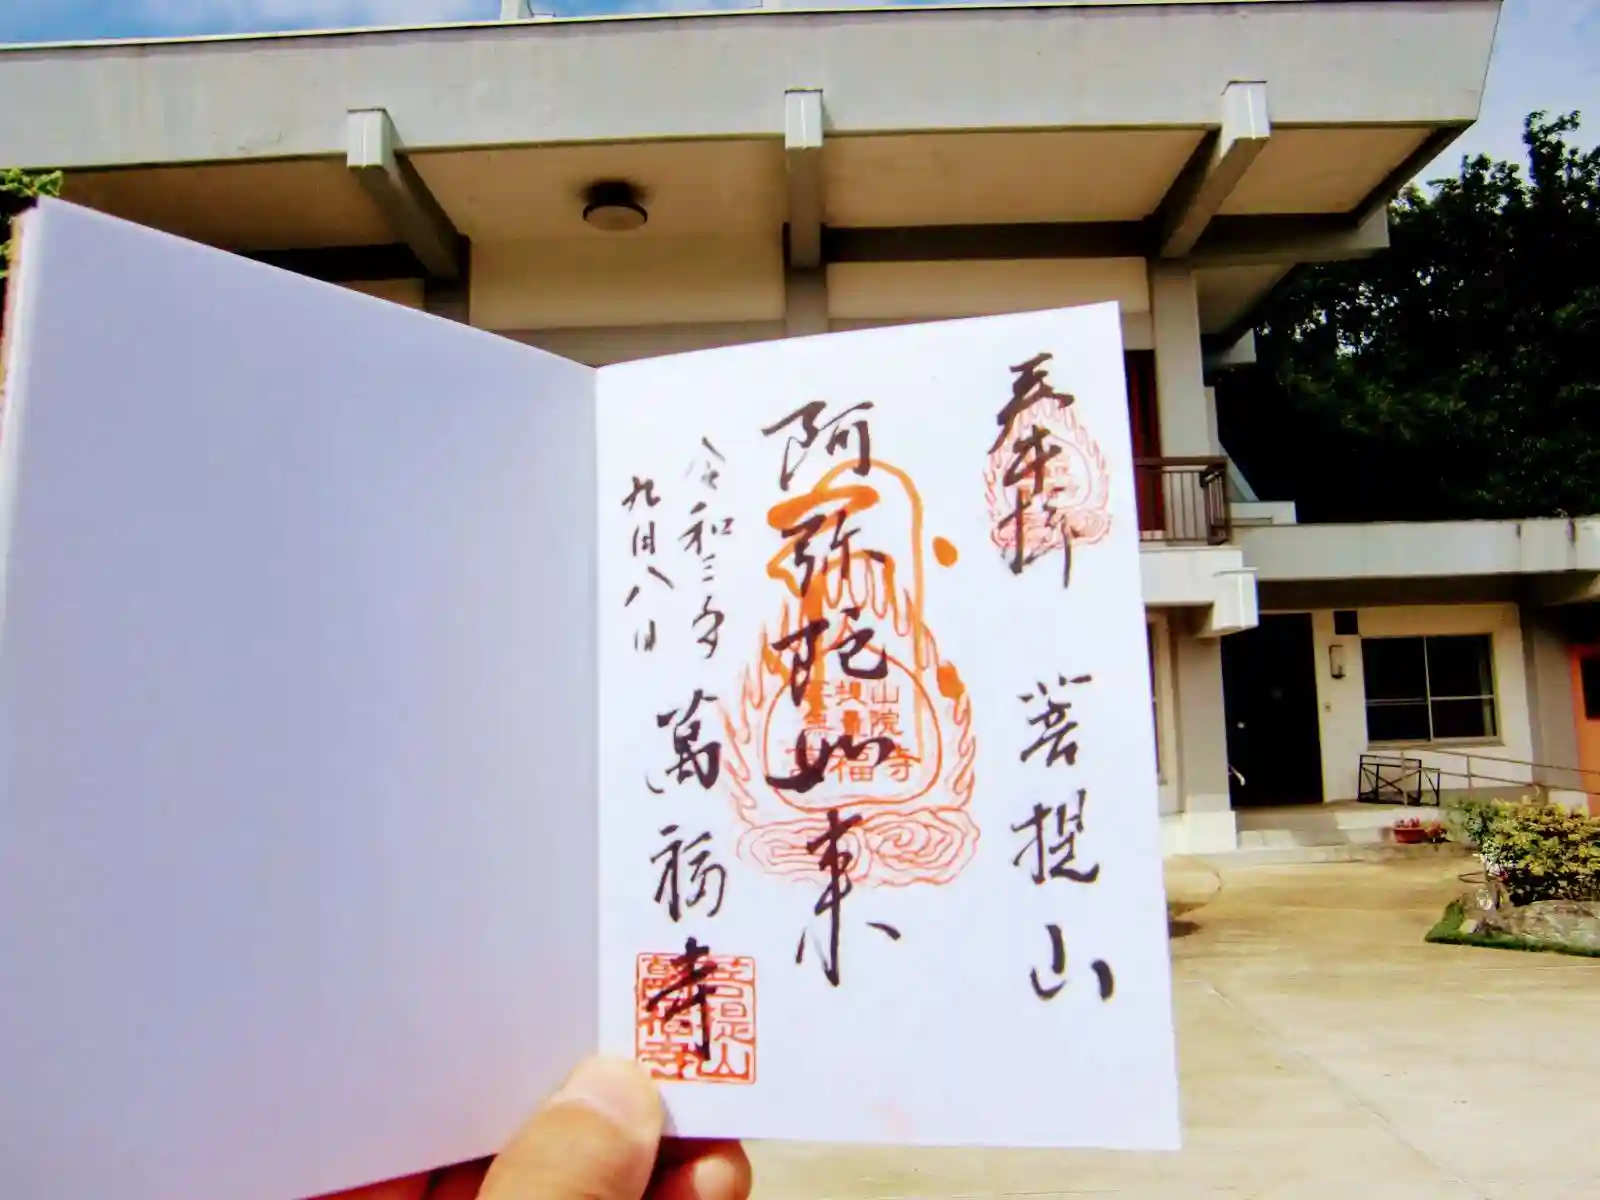 奉拝
菩提山
阿弥陀如来
令和三年
九月八日
萬福寺
菩提山
無量院
萬福寺
菩提山
萬福寺